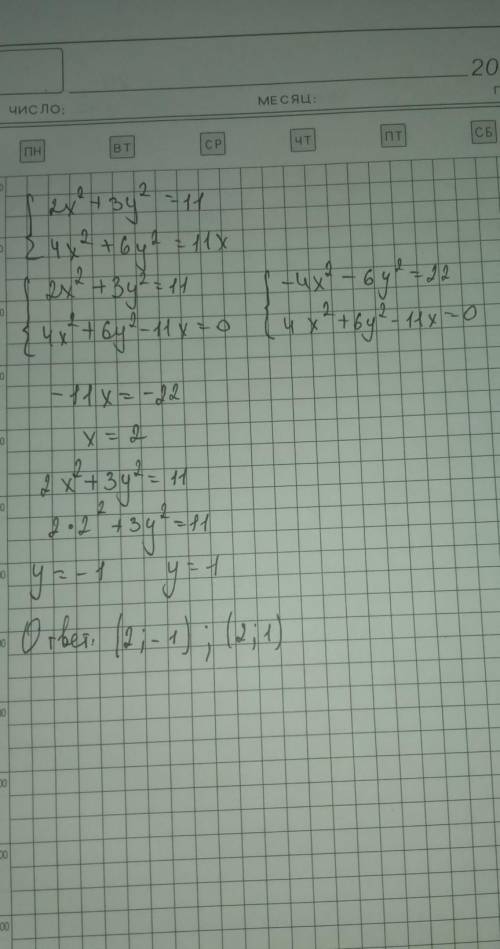 20
ЧИСЛО: МЕСЯЦ:
ПН ВТ СР ЧТ ПТ СБ
2x² + 3y² = 11
4x² + 6y² = 11x
2x² + 3y² = 11
4x² + 6y² - 11x = 0
-4x² - 6y² = 22
4x² + 6y² - 11x = 0
-11x = -22
x = 2
2x² + 3y² = 11
2 · 2² + 3y² = 11
y = -1 y = 1
Ответ: (2; -1) ; (2; 1)